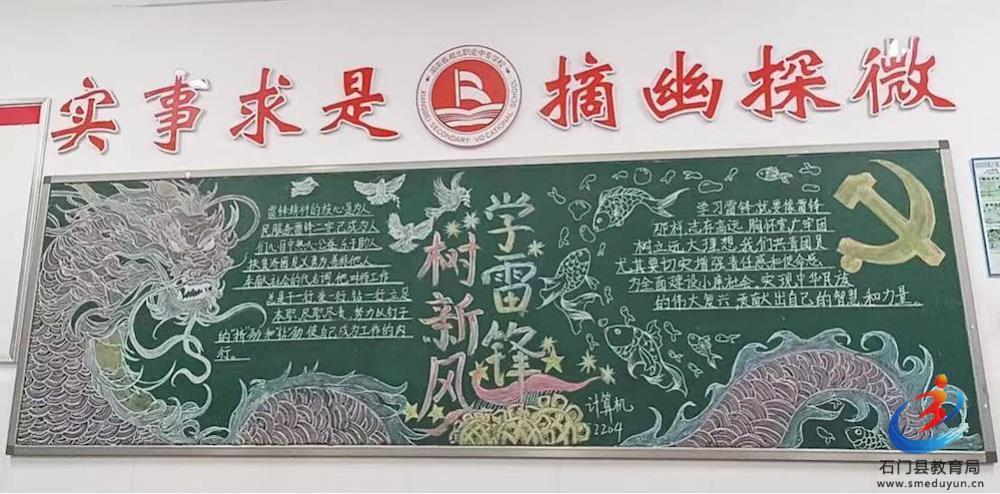 实事求是 摘幽探微
湖南省湘北职业中专学校
XIANGBEI SECONDARY VOCATIONAL SCHOOL
雷锋精神的核心是为人
民服务雷锋二字已成为人
们心目中热心公益乐于助人
扶贫济困见义勇为善待他人
奉献社会的代名词他对待工作
总是干一行爱一行钻一行立足
本职尽职尽责,努力以钉子
的"挤"劲和"钻"劲使自己成为工作的内
行。
树新风
学雷锋
学习雷锋就要像雷锋
那样志存高远,胸怀宽广牢固
树立远大理想,我们共青团员
尤其要切实增强责任感和使命感,
为全面建设小康社会、实现中华民族
的伟大复兴,贡献出自己的智慧和力量。
计算机
2204
石门县教育局
www.smeduyun.cn